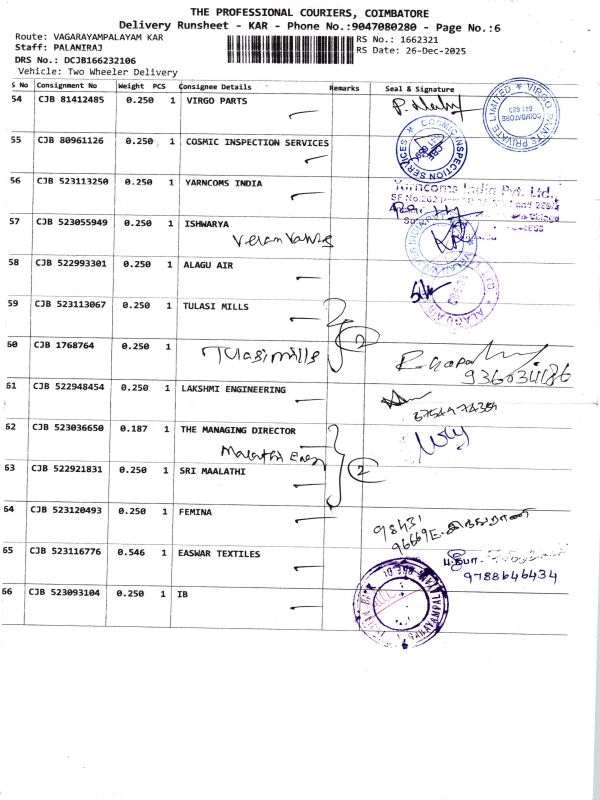 THE PROFESSIONAL COURIERS, COIMBATORE
Delivery Runsheet - KAR - Phone No.:9047080280 - Page No.:6
Route: VAGARAYAMPALAYAM KAR
RS No.: 1662321
Staff: PALANIRAJ
RS Date: 26-Dec-2025
DRS No.: DCJB166232106
Vehicle: Two Wheeler Delivery
S No Consignment No Weight PCS Consignee Details Remarks Seal & Signature
54 CJB 81412485 0.250 1 VIRGO PARTS
55 CJB 80961126 0.250 1 COSMIC INSPECTION SERVICES
COSMIC INSPECTION SERVICES
56 CJB 523113250 0.250 1 YARNCOMS INDIA
Yarncoms India Pvt. Ltd.,
57 CJB 523055949 0.250 1 ISHWARYA
58 CJB 522993301 0.250 1 ALAGU AIR
59 CJB 523113067 0.250 1 TULASI MILLS
60 CJB 1768764 0.250 1
Tulasi mills
2
61 CJB 522948454 0.250 1 LAKSHMI ENGINEERING
62 CJB 523036650 0.187 1 THE MANAGING DIRECTOR
Malathi
2
63 CJB 522921831 0.250 1 SRI MAALATHI
64 CJB 523120493 0.250 1 FEMINA
98431
96669
65 CJB 523116776 0.546 1 EASWAR TEXTILES
9788646434
66 CJB 523093104 0.250 1 IB